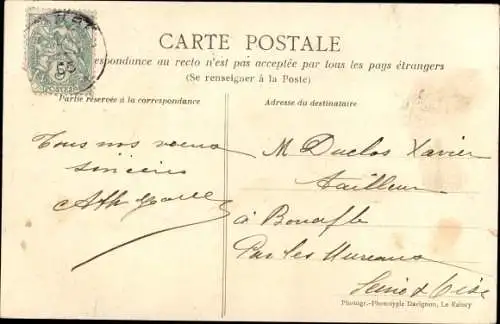 CARTE POSTALE
respondance au recto n'est pas acceptée par tous les pays étrangers
(Se renseigner à la Poste)
Partie réservée à la correspondance
Adresse du destinataire
Tous nos voeux
sincères
M Duclos Xavier
Tailleur
à Bouafle
Par les Mureaux
Seine & Oise
Photogr.-Phototypie Darignon, Le Raincy